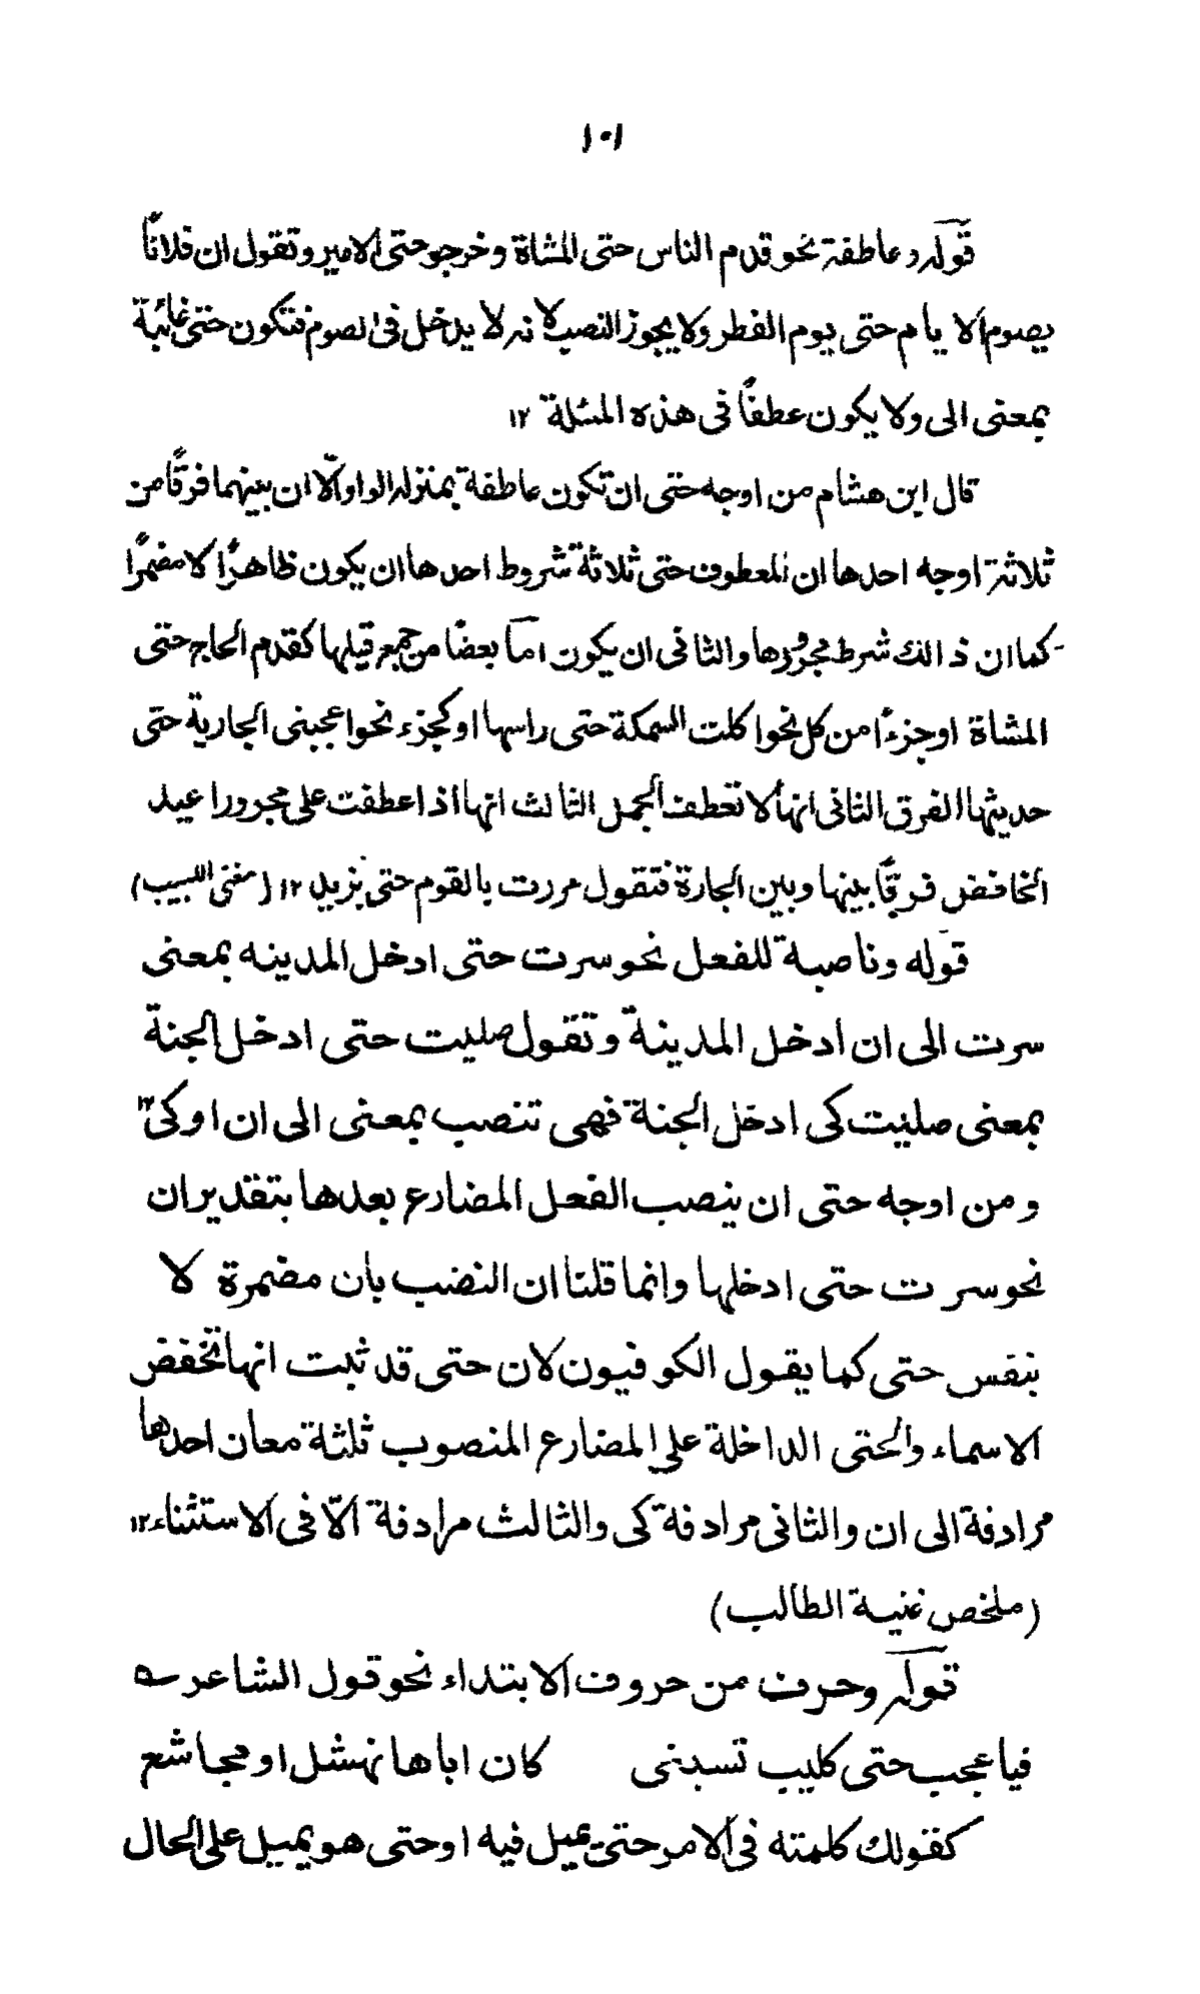 ١٠١
قوله وعاطفة نحو قدم الناس حتى المشاة وخرجو حتى الامير وتقول ان فلاناً
يصوم الايام حتى يوم الفطر ولا يجوز النصب لانه لا يدخل فى الصوم فتكون حتى غائية
بمعنى الى ولا يكون عطفاً فى هذه المسئلة ١٢
قال ابن هشام من اوجه حتى ان تكون عاطفة بمنزلة الواو الّا ان بينهما فرقاً من
ثلاثة اوجه احدها ان المعطوف حتى ثلاثة شروط احدها ان يكون ظاهرًا لا مضمرًا
كما ان ذالك شرط مجرورها والثانى ان يكون امّا بعضًا من جمع قبلها كقدم الحاج حتى
المشاة اوجزءًا من كل نحو اكلت السمكة حتى راسها او كجزء نحو اعجبنى الجارية حتى
حديثها الفرق الثانى انها لا تعطف الجمل الثالث انها اذا عطفت على مجرور اعيد
الخافض فرقًا بينها وبين الجارة فتقول مررت بالقوم حتى بزيد ١٢ (مغنى اللبيب)
قوله وناصبة للفعل نحو سرت حتى ادخل المدينه بمعنى
سرت الى ان ادخل المدينة وتقول صليت حتى ادخل الجنة
بمعنى صليت كى ادخل الجنة فهى تنصب بمعنى الى ان او كى ١٢
ومن اوجه حتى ان ينصب الفعل المضارع بعدها بتقدير ان
نحو سرت حتى ادخلها وانما قلنا ان النضب بان مضمرة لا
بنفس حتى كما يقول الكوفيون لان حتى قد ثبت انها تخفض
الاسماء والحتى الداخلة على المضارع المنصوب ثلثة معان احدها
مرادفة الى ان والثانى مرادفة كى والثالث مرادفة الّا فى الاستثناء ١٢
(ملخص غنية الطالب)
قوله وحرف من حروف الابتداء نحو قول الشاعر ؎
فيا عجب حتى كليب تسبنى كان اباها نهشل او مجاشع
كقولك كلمته فى الامر حتى يميل فيه او حتى هو يميل على الحال